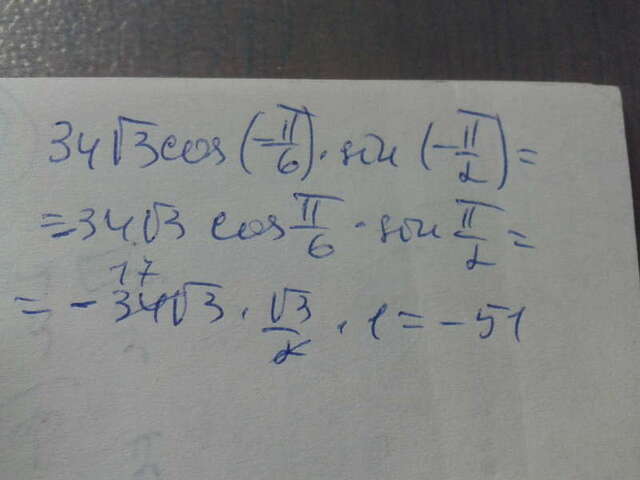 34√3cos(-π/6)·sin(-π/2)=
=-34√3 cos π/6 · sin π/2 =
17
= -34√3 · √3/2 · 1 = -51